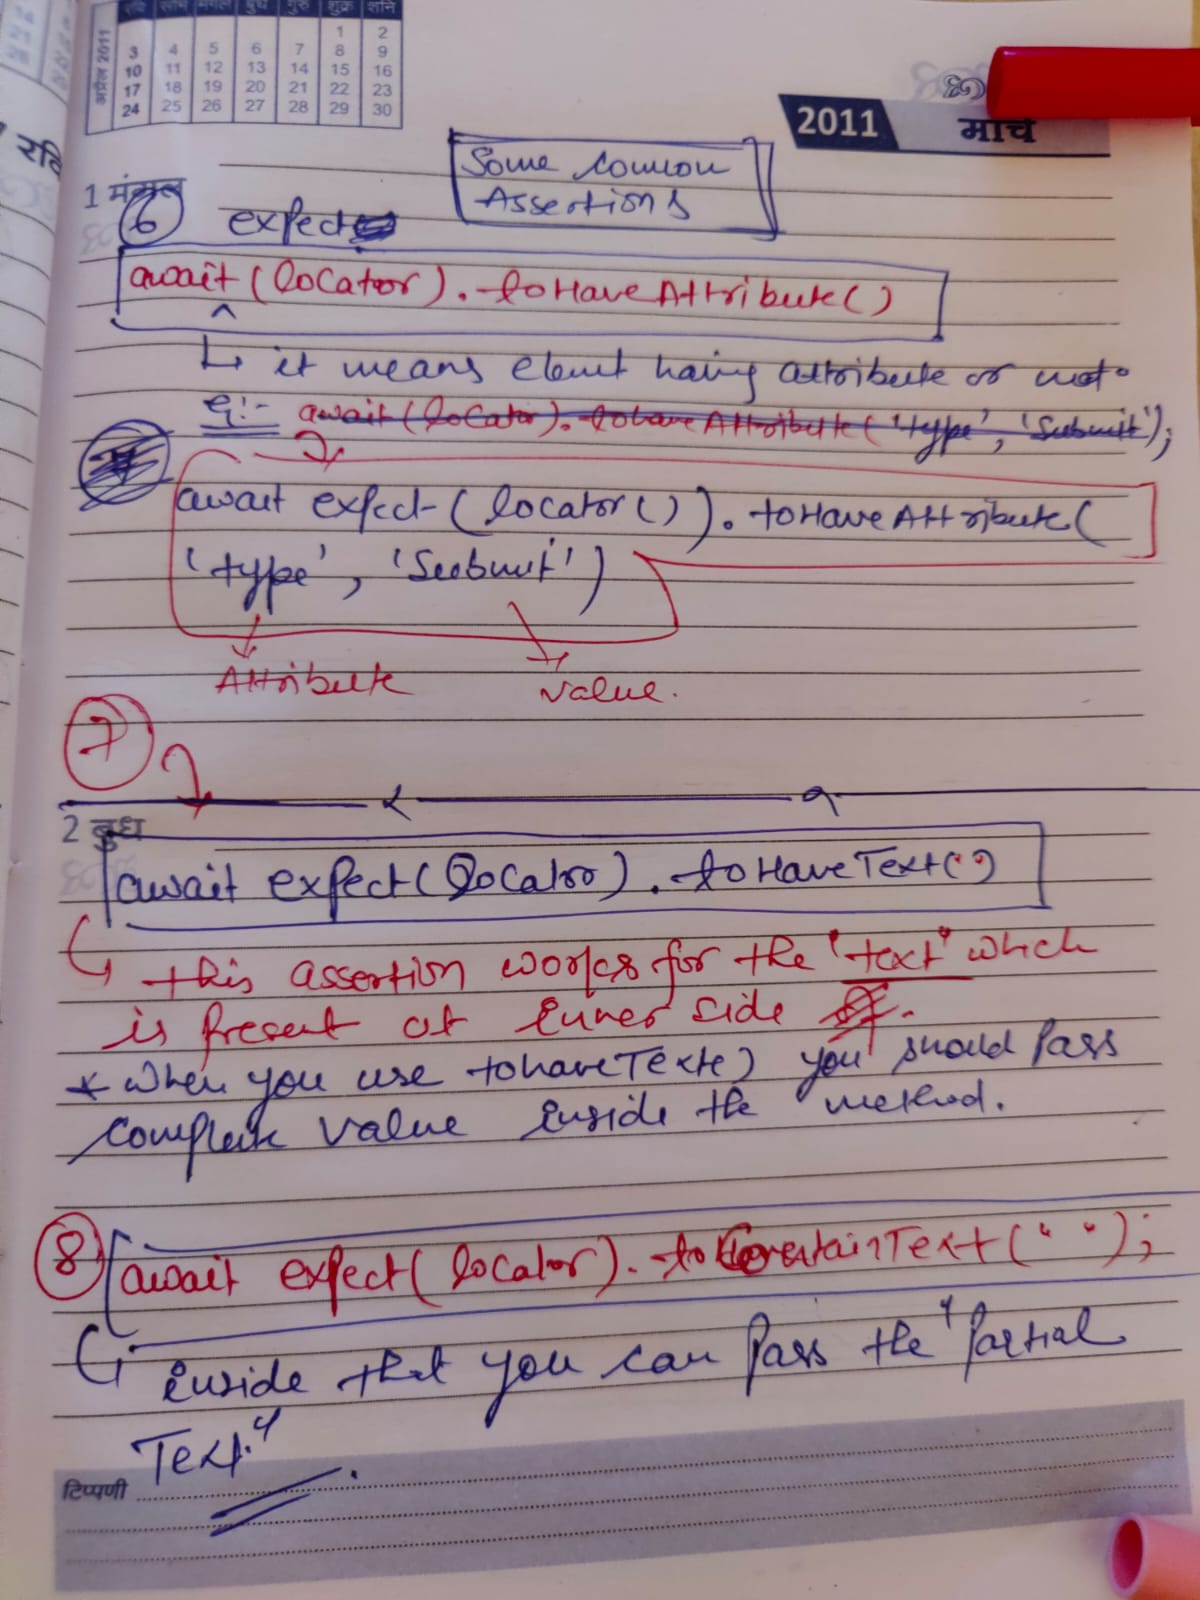 रवि सोम मंगल बुध गुरु शुक्र शनि
अप्रैल 2011
1 2
3 4 5 6 7 8 9
10 11 12 13 14 15 16
17 18 19 20 21 22 23
24 25 26 27 28 29 30
2011 मार्च
रवि
Some common
Assertions
1 मंगल
6 expect
await (locator). toHaveAttribute()
^
↳ it means elemt having attribute or not.
eg:- await (locator). tohaveAttribute('type', 'Submit');
await expect (locator()). toHaveAttribute(
'type', 'Submit')
Attribute value.
7
2 बुध
await expect(locator). toHaveText(' ')
↳ this assertion works for the "text" which
is present at inner side
* when you use tohaveText() you should pass
complete value inside the method.
8 await expect(locator). toContainText(" ");
↳ inside that you can pass the "partial
Text."
टिप्पणी